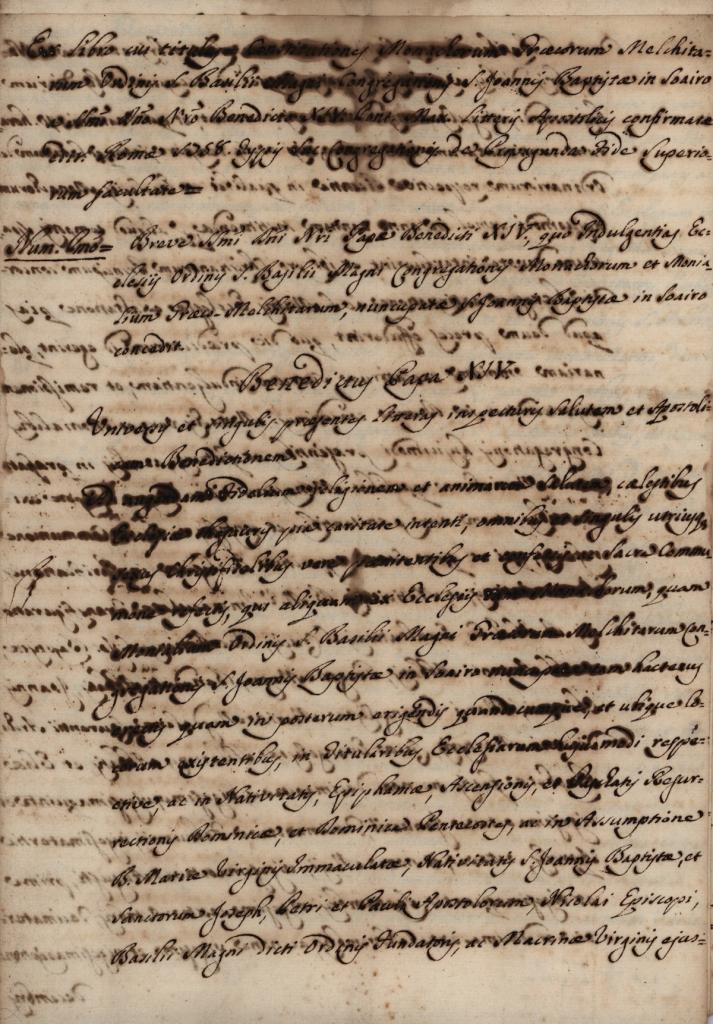 Ex libro cui titulus Constitutiones Monachorum Græcorum Melchita-
rum Ordinis S. Basilii Magni Congregationis S. Joannis Baptistæ in Soairo
a Smo Dno Nro Benedicto XIV. Pont. Max. Litteris Apostolicis confirmatæ
edit. Romæ Typis Sac. Congregationis De Propaganda Fide Superio-
rum facultate =
Num. Uno = Breve Smi Dni Nri Papæ Benedicti XIV, quo Indulgentias Ec-
clesiis Ordinis S. Basilii Magni Congregationis Monachorum et Monia-
lium Græco-Melchitarum, nuncupatæ S. Joannis Baptistæ in Soairo
concedit.
Benedictus Papa XIV.
Universis et singulis præsentes litteras inspecturis Salutem et Apostoli-
cam Benedictionem
Ad augendam Fidelium Religionem et animarum Salutem, cælestibus
Ecclesiæ thesauris pia caritate intenti, omnibus et singulis utriusq.
sexus Christifidelibus vere pænitentibus et confessis ac Sacra Commu-
nione refectis, qui aliquam ex Ecclesiis tam Monachorum, quam
Monialium Ordinis S. Basilii Magni Græcorum Melchitarum Con-
gregationis S. Joannis Baptistæ in Soairo nuncupatæ tam hactenus
erectis quam in posterum erigendis quandocumque, et ubique lo-
corum existentibus, in Titularibus Ecclesiarum hujusmodi respe-
ctive, ac in Nativitatis, Epiphaniæ, Ascensionis, et Paschatis Resur-
rectionis Dominicæ, et Dominica Pentecostes, ac in Assumptione
B. Mariæ Virginis Immaculatæ, Nativitatis S. Joannis Baptistæ, et
Sanctorum Joseph, Petri et Pauli Apostolorum, Nicolai Episcopi,
Basilii Magni dicti Ordinis Fundatoris, ac Macrinæ Virginis ejus-